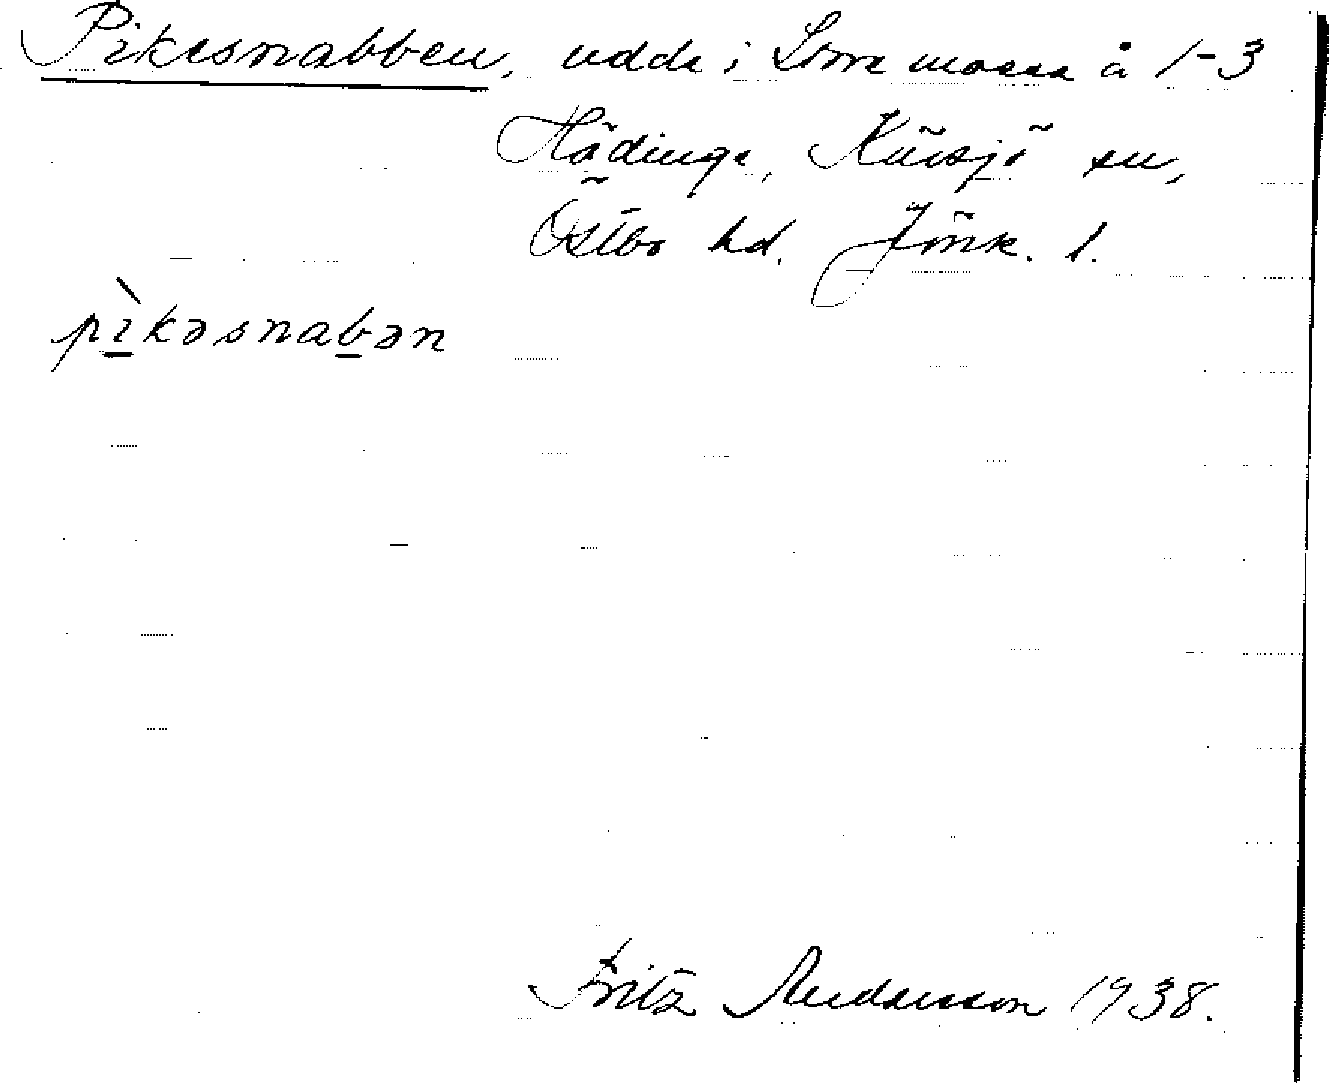 Pikesnabben, udde i Store mosse å 1-3
Hädinge, Kävsjö sn,
Östbo hd. Jönk. l.
pìkəsnabən
Fritz Andersson 1938.